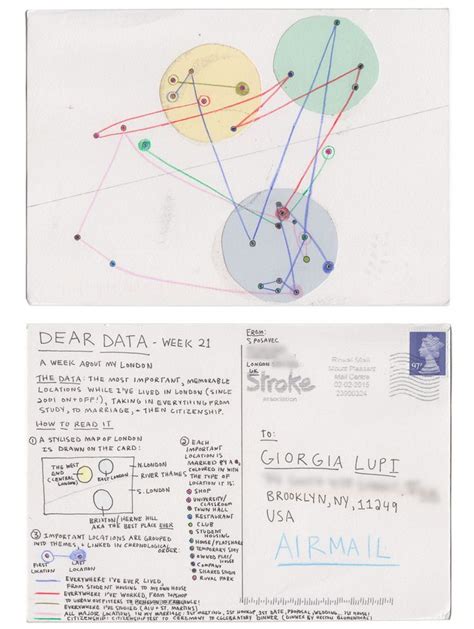 DEAR DATA - WEEK 21
A WEEK ABOUT MY LONDON
THE DATA: THE MOST IMPORTANT, MEMORABLE
LOCATIONS WHILE I'VE LIVED IN LONDON (SINCE
2001 ON+OFF!), TAKING IN EVERYTHING FROM
STUDY, TO MARRIAGE, + THEN CITIZENSHIP.
HOW TO READ IT
① A STYLISED MAP OF LONDON
IS DRAWN ON THE CARD:
THE WEST
END
(CENTRAL
LONDON)
EAST LONDON
N. LONDON
RIVER THAMES
S. LONDON
BRIXTON/HERNE HILL
AKA THE BEST PLACE EVER
② EACH
IMPORTANT
LOCATION IS
MARKED BY A
COLOURED IN WITH
THE TYPE OF
LOCATION IT IS:
SHOP
UNIVERSITY/
CLASSROOM
TOWN HALL
RESTAURANT
CLUB
STUDENT
HOUSING
HOUSE/FLATSHARE
TEMPORARY STAY
OWNED HOUSE
PUB
COMPANY
SHARED STUDIO
ROYAL PARK
③ IMPORTANT LOCATIONS ARE GROUPED
INTO THEMES, + LINKED IN CHRONOLOGICAL
ORDER:
FIRST
LOCATION
LAST
LOCATION
EVERYWHERE I'VE EVER LIVED,
FROM STUDENT HOUSING TO MY OWN HOUSE
EVERYWHERE I'VE WORKED, FROM TOPSHOP
TO
EVERYWHERE I'VE STUDIED
ALL MAJOR LOCATIONS IN MY MARRIAGE: 1ST MEETING, 1ST HOOKUP, 1ST DATE, PROPOSAL, WEDDING, 1ST HOUSE!
CITIZENSHIP: CITIZENSHIP TEST TO CEREMONY TO CELEBRATORY DINNER (DINNER BY HESTON BLUMENTHAL)
FROM:
S POSAVEC
LONDON
UK
Stroke
association
Royal Mail
Mount Pleasant
Mail Centre
02-02-2015
97p
TO:
GIORGIA LUPI
BROOKLYN, NY, 11249
USA
AIRMAIL